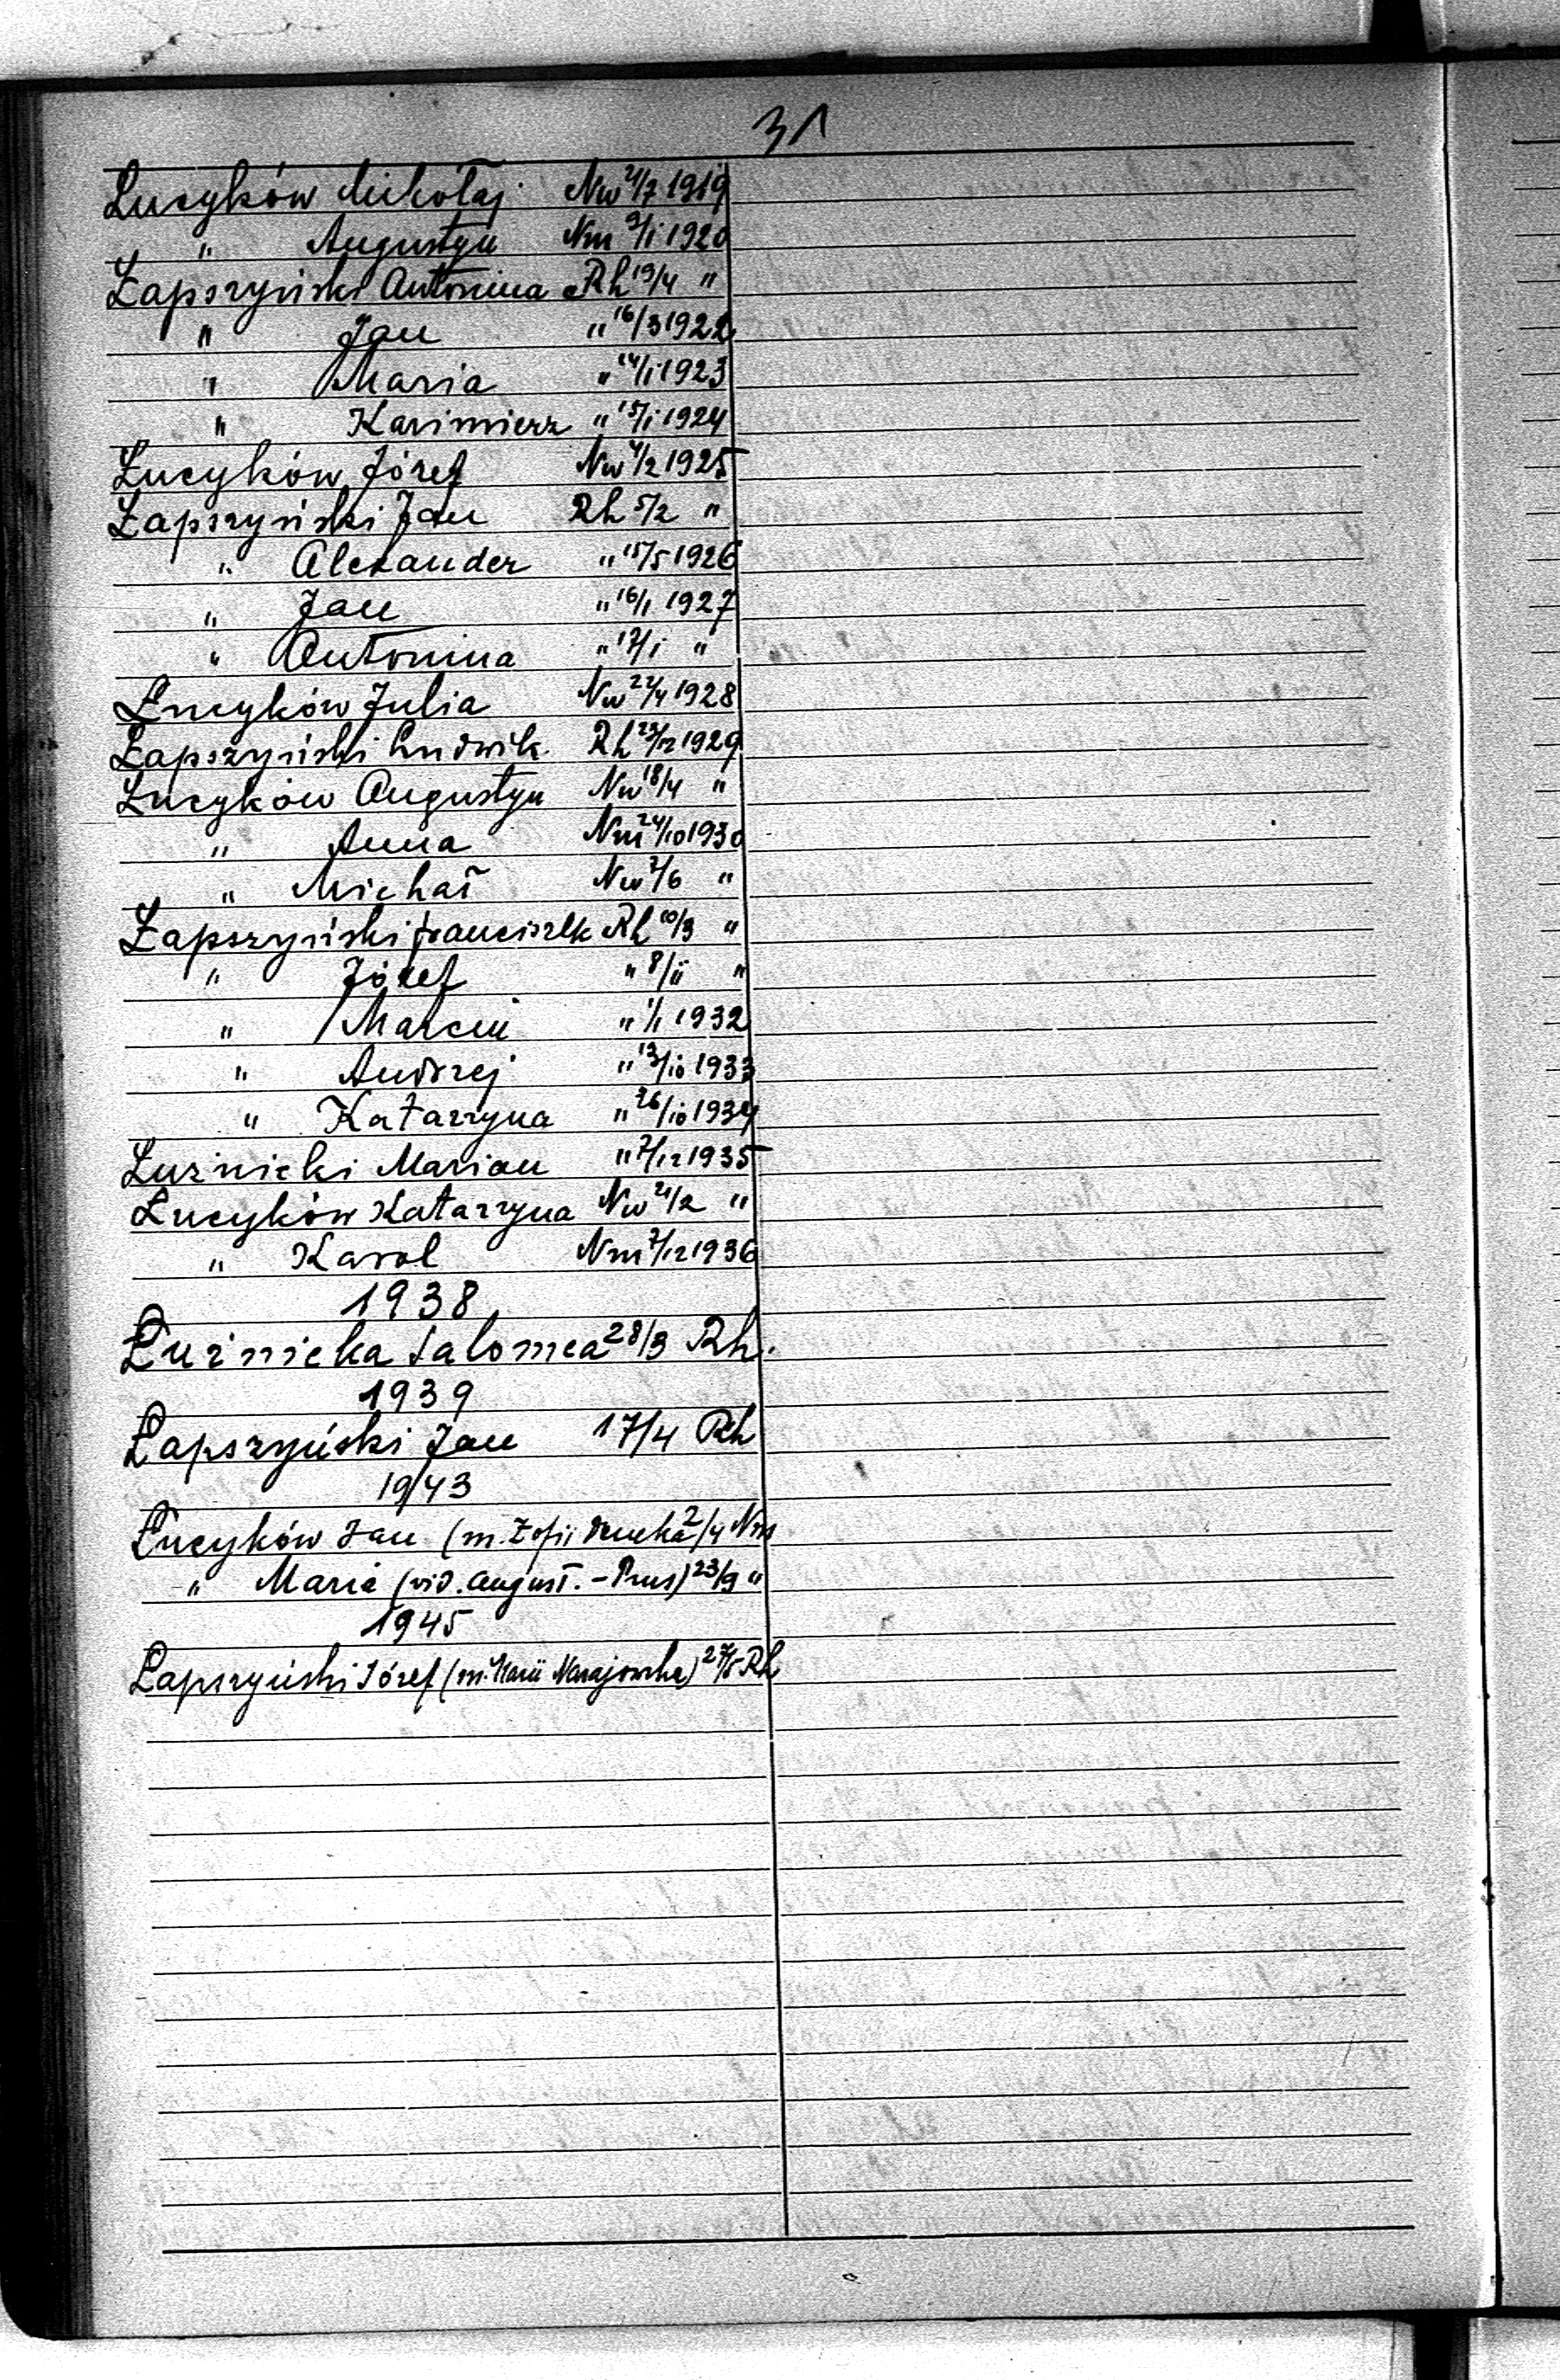 31
Łucyków Mikołaj Nw 4/7 1919
" Augustyn Nm 9/I 1920
Łapszyński Antonina Rh 19/4 "
" Jan " 16/3 1922
" Maria " 14/I 1923
" Kazimierz " 15/I 1924
Łucyków Józef Nw 4/2 1925
Łapszyński Jan Rh 5/2 "
" Alexander " 15/5 1926
" Jan " 16/1 1927
" Antonina " 17/I "
Łucyków Julia Nw 22/4 1928
Łapszyński Ludwik Rh 23/12 1929
Łucyków Augustyn Nw 18/4 "
" Anna Nm 24/10 1930
" Michał Nw 7/6 "
Łapszyński Franciszek Rh 10/3 "
" Józef " 8/II "
" Marcin " 1/1 1932
" Andrzej " 13/10 1933
" Katarzyna " 26/10 1934
Łuznicki Marian " 7/12 1935
Łucyków Katarzyna Nw 21/2 "
" Karol Nm 7/12 1936
1938
Łuźnicka Salomea 28/3 Rh.
1939
Łapszyński Jan 17/4 Rh
1943
Łucyków Jan (m. Zofii 2/4 Nm
" Maria (vid. August. - Prus) 23/9 "
1945
Łapszyński Józef (m. Marii Narajowska) 27/5 Rh